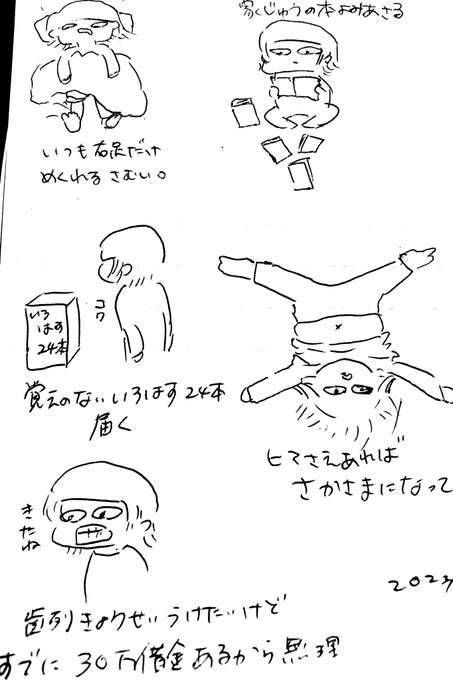 いつも右足だけ
めくれる さむい。
家くじゅうの本よみあさる
いろ
はす
24本
コワ
覚えのないいろはす24本
届く
ヒマさえあれば
さかさまになって
きたね
歯列きょうせいうけたいけど
すでに30万借金あるから無理
2023